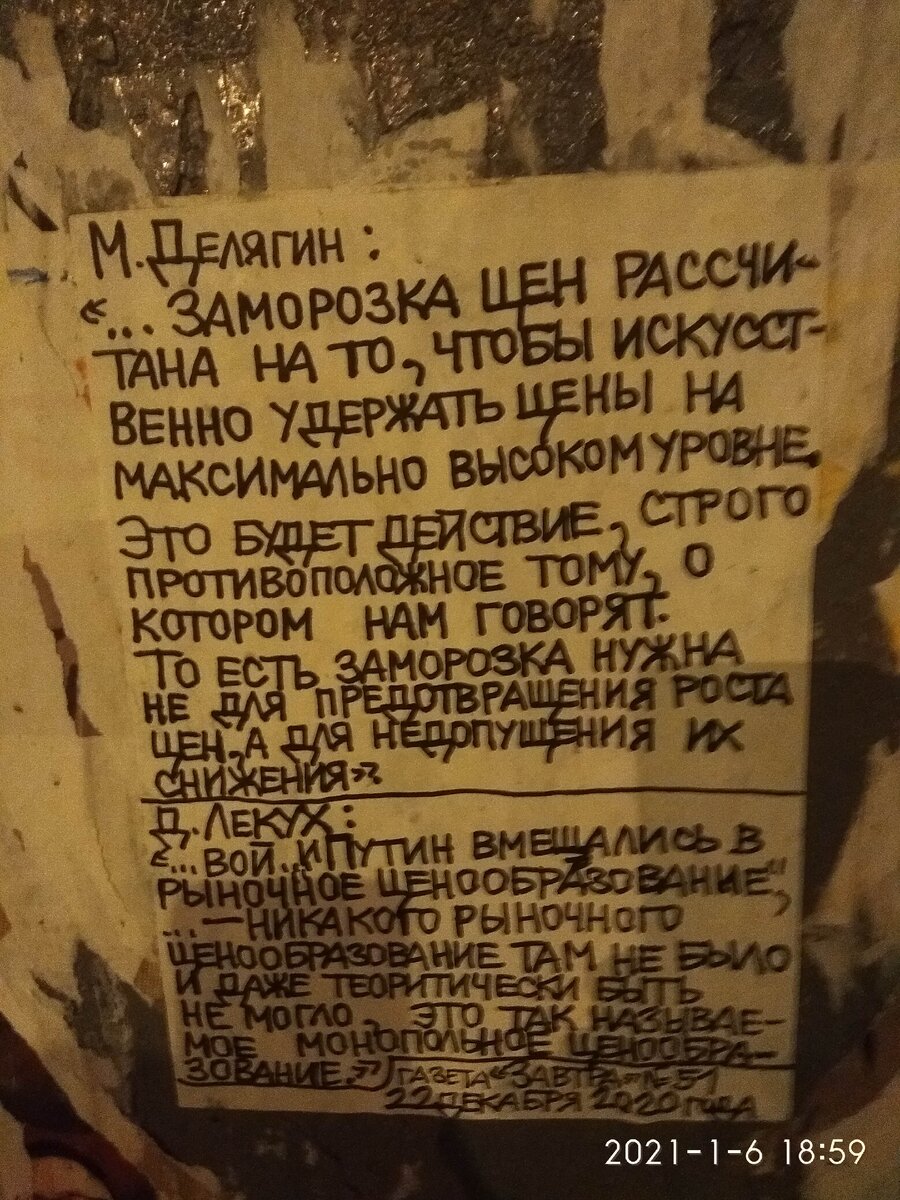 М. Делягин :
«... ЗАМОРОЗКА ЦЕН РАССЧИ-
ТАНА НА ТО, ЧТОБЫ ИСКУССТ-
ВЕННО УДЕРЖАТЬ ЦЕНЫ НА
МАКСИМАЛЬНО ВЫСОКОМ УРОВНЕ.
ЭТО БУДЕТ ДЕЙСТВИЕ, СТРОГО
ПРОТИВОПОЛОЖНОЕ ТОМУ, О
КОТОРОМ НАМ ГОВОРЯТ.
ТО ЕСТЬ ЗАМОРОЗКА НУЖНА
НЕ ДЛЯ ПРЕДОТВРАЩЕНИЯ РОСТА
ЦЕН, А ДЛЯ НЕДОПУЩЕНИЯ ИХ
СНИЖЕНИЯ».
Д. ЛЕКУХ :
«... ВОЙ... И ПУТИН ВМЕШАЛИСЬ В
РЫНОЧНОЕ ЦЕНООБРАЗОВАНИЕ",
... — НИКАКОГО РЫНОЧНОГО
ЦЕНООБРАЗОВАНИЕ ТАМ НЕ БЫЛО
И ДАЖЕ ТЕОРИТИЧЕСКИ БЫТЬ
НЕ МОГЛО, ЭТО ТАК НАЗЫВАЕ-
МОЕ МОНОПОЛЬНОЕ ЦЕНООБРА-
ЗОВАНИЕ.» ГАЗЕТА «ЗАВТРА» № 51
22 ДЕКАБРЯ 2020 ГОДА
2021-1-6 18:59